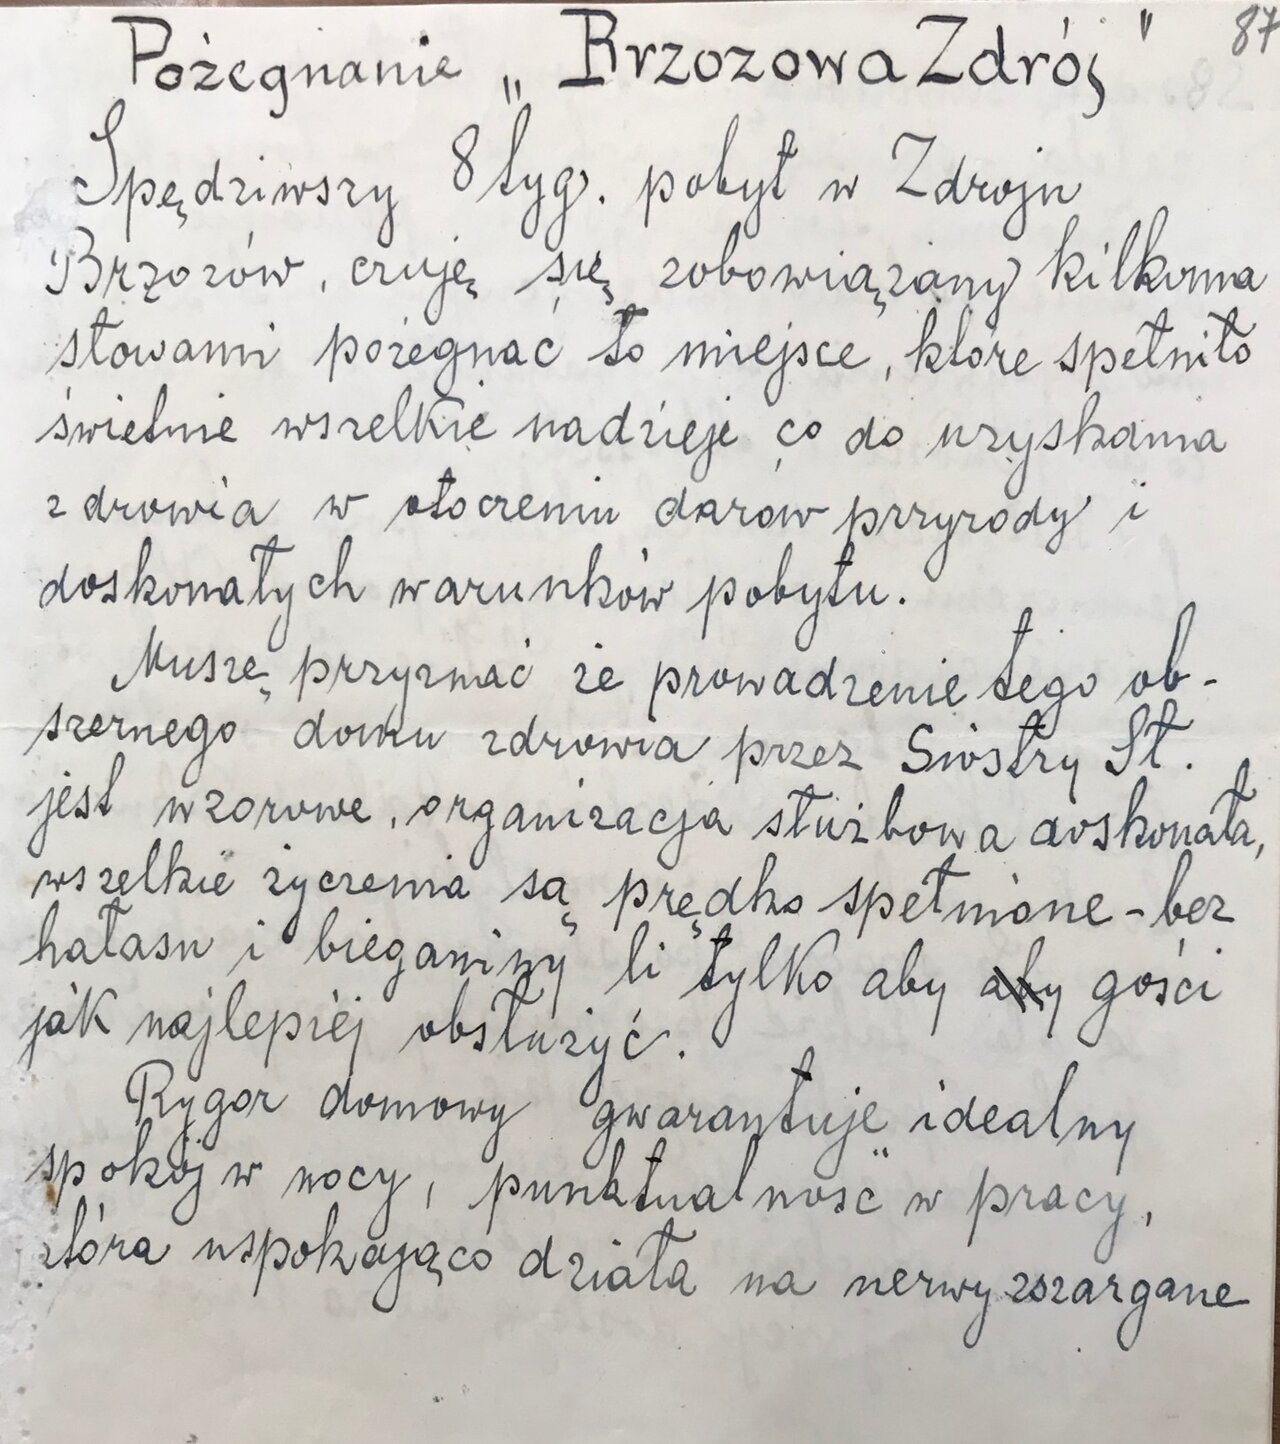 87
Pożegnanie „Brzozowa Zdrój"
Spędziwszy 8 tyg. pobyt w Zdroju
Brzozów, czuję się zobowiązany kilkoma
słowami pożegnać to miejsce, które spełniło
świetnie wszelkie nadzieje co do uzyskania
zdrowia w otoczeniu darów przyrody i
doskonałych warunków pobytu.
Muszę przyznać że prowadzenie tego ob-
szernego domu zdrowia przez Siostry St.
jest wzorowe, organizacja służbowa doskonała,
wszelkie życzenia są prędko spełnione - bez
hałasu i bieganiny li tylko aby aby gości
jak najlepiej obsłużyć.
Rygor domowy gwarantuje idealny
spokój w nocy, punktualność w pracy,
która uspokająco działa na nerwy zszargane